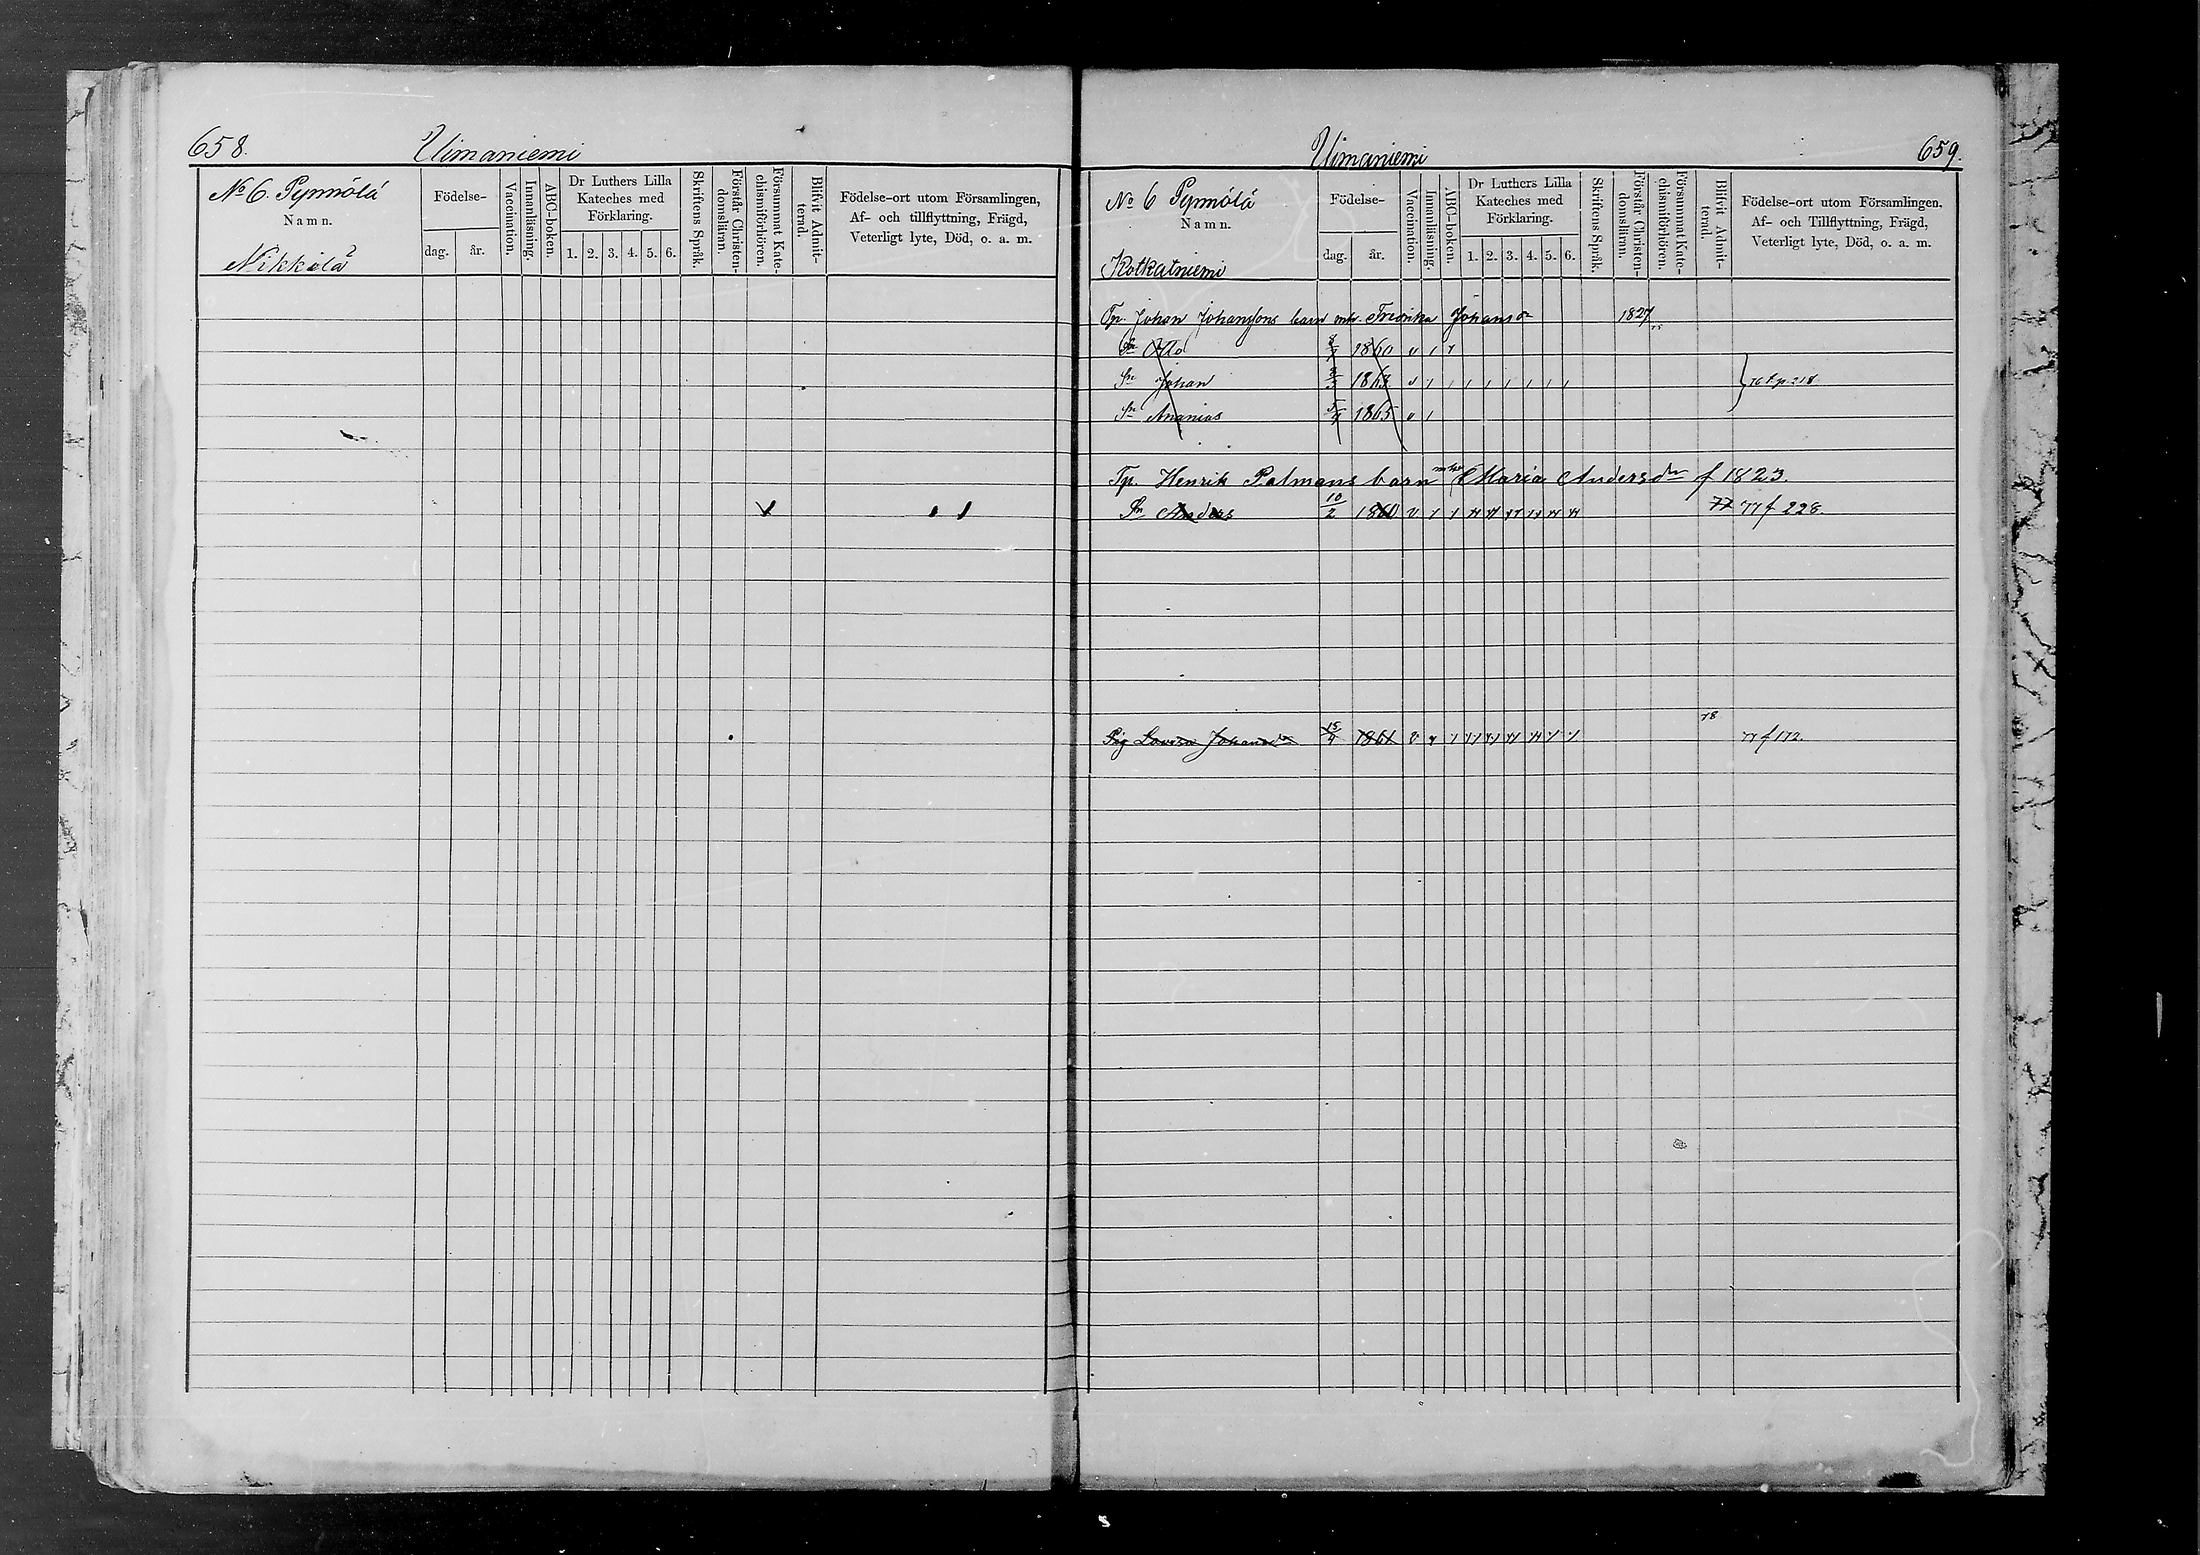 658.
Uimaniemi
No 6. Pynnölä
Namn.
Nikkilä
Födelse-
dag.
år.
Vaccination.
Innanläsning.
ABC-boken.
Dr Luthers Lilla
Kateches med
Förklaring.
1. 2. 3. 4. 5. 6.
Skriftens Språk.
Förstår Christen-
domsläran.
Försummat Kate-
chismiförhören.
Blifvit Admit-
terad.
Födelse-ort utom Församlingen,
Af- och tillflyttning, Frägd,
Veterligt lyte, Död, o. a. m.
Uimaniemi
659.
No 6 Pynnölä
Namn.
Kotkatniemi
Födelse-
dag.
år.
Vaccination.
Innanläsning.
ABC-boken.
Dr Luthers Lilla
Kateches med
Förklaring.
1. 2. 3. 4. 5. 6.
Skriftens Språk.
Förstår Christen-
domsläran.
Försummat Kate-
chismiförhören.
Blifvit Admit-
terad.
Födelse-ort utom Församlingen.
Af- och Tillflyttning, Frägd,
Veterligt lyte, Död, o. a. m.
Tp. Johan Johanssons barn Fredrika Johansdr 1827
Sn Otto 1860 v
Sn Johan 1863 v 218
Sn Ananias 1865 v
Tp. Henrik Palmans barn Maria Andersdr f 1823.
Sn Anders 10/2 1860 v 77 77 f 228.
78
Pig Lovisa Johansdr 15/9 1861 v 77 f 172.